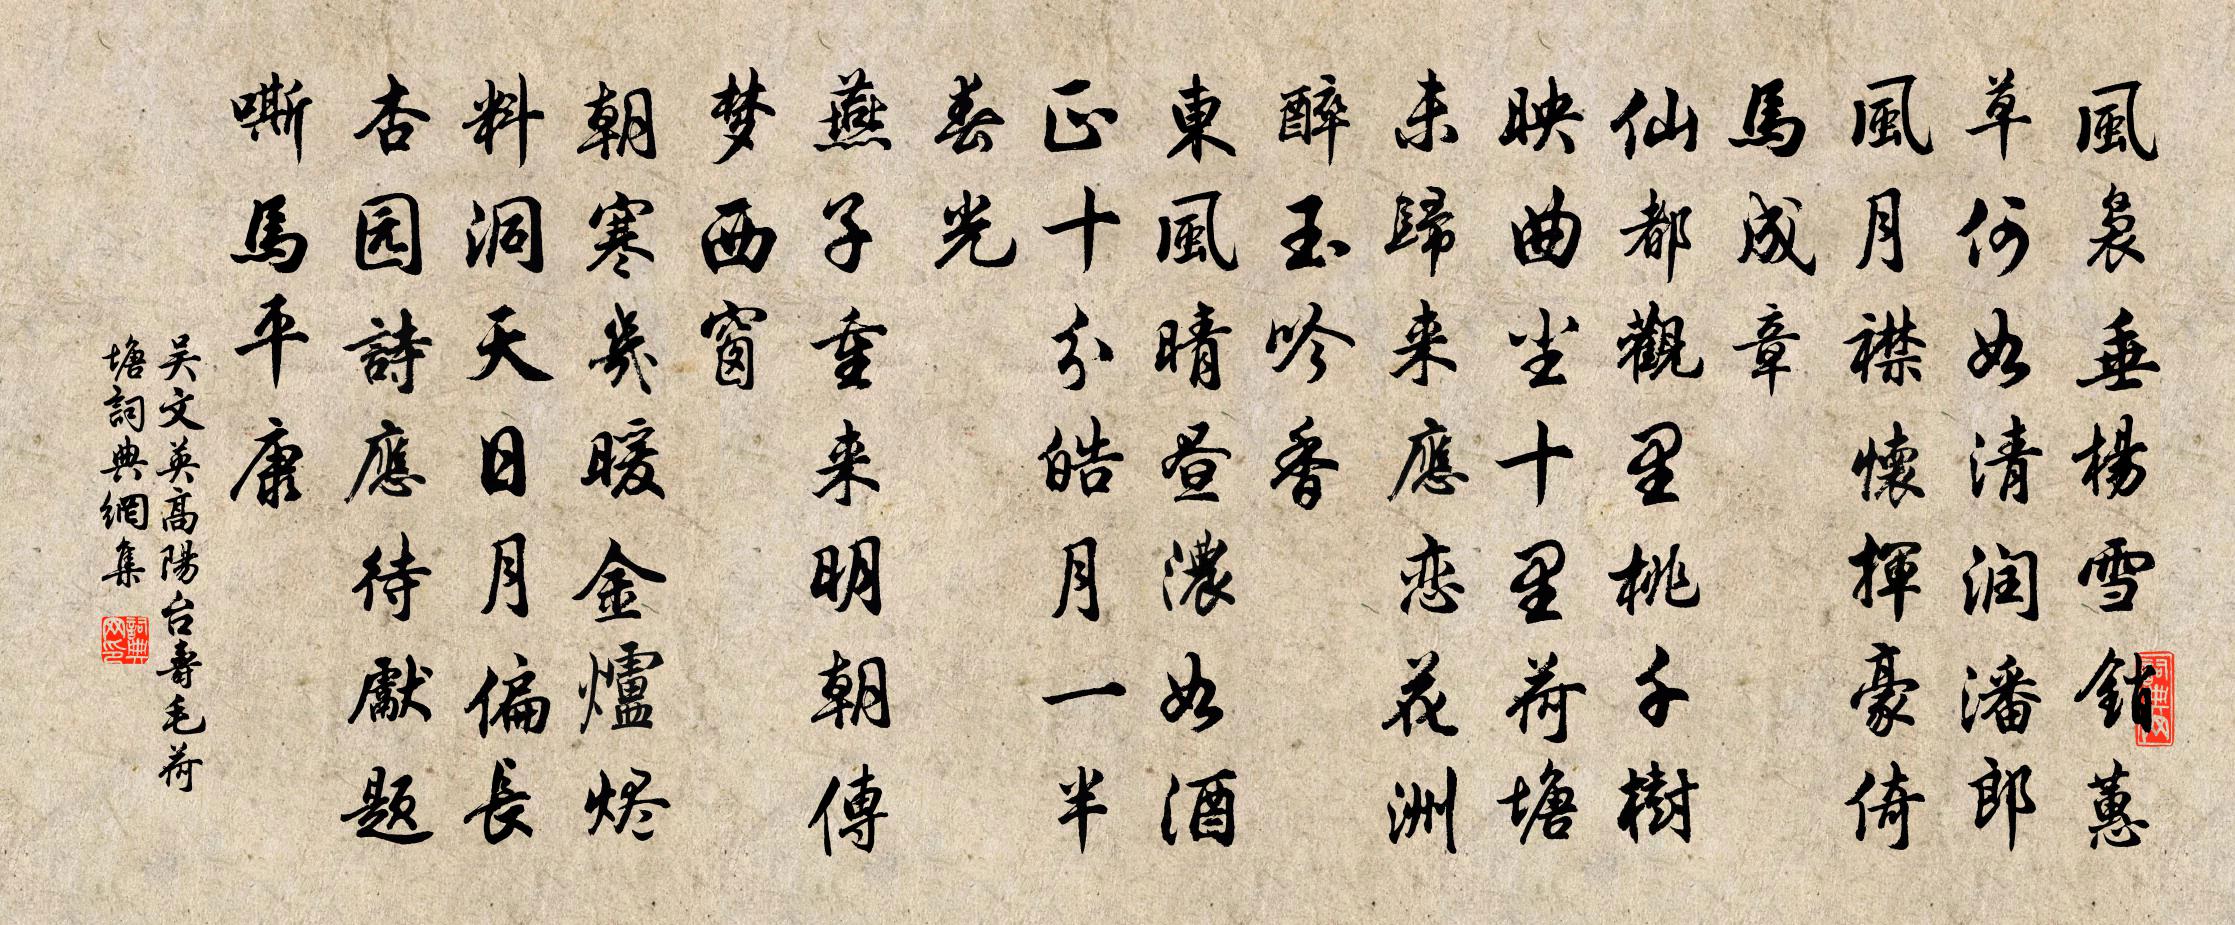 風裊垂楊雪銷蕙
草何如清润潘郎
風月襟懷揮豪倚
馬成章
仙都觀里桃千樹
映曲尘十里荷塘
未歸来應恋花洲
醉玉吟香
東風晴昼濃如酒
正十分皓月一半
春光
燕子重来明朝傳
梦西窗
朝寒幾暖金爐烬
料洞天日月偏長
杏园詩應待獻题
嘶馬平康
吴文英高陽台壽毛荷
塘詞典網集
詞典网印
词典网